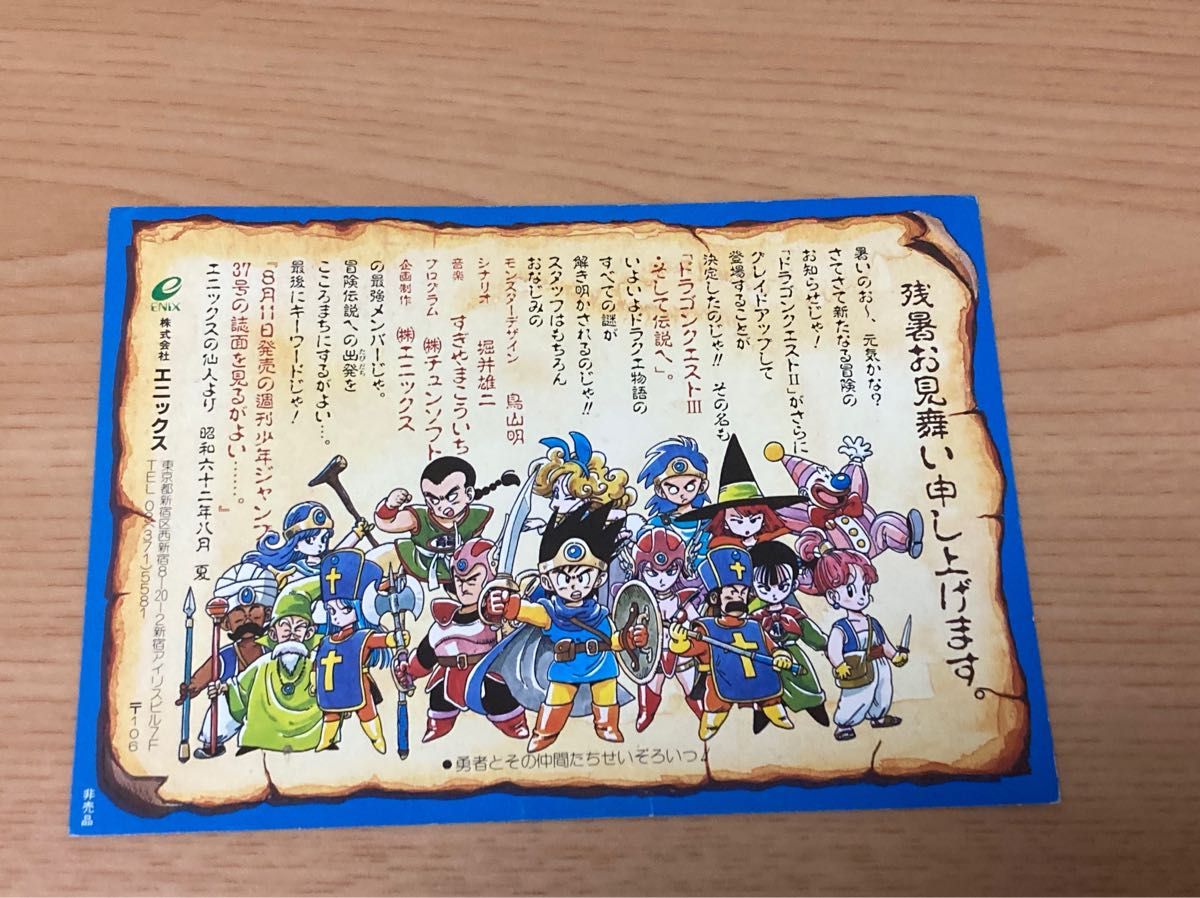 残暑お見舞い申し上げます。
暑いのお〜、元気かな?
さてさて新たなる冒険の
お知らせじゃ!
「ドラゴンクエストⅡ」がさらに
グレイドアップして
登場することが
決定したのじゃ!! その名も
「ドラゴンクエストⅢ
・そして伝説へ」。
いよいよドラクエ物語の
すべての謎が
解き明かされるのじゃ!!
スタッフはもちろん
おなじみの
モンスターデザイン 鳥山明
シナリオ 堀井雄二
音楽 すぎやまこういち
プログラム ㈱チュンソフト
企画制作 ㈱エニックス
の最強メンバーじゃ。
冒険伝説への出発を
たびだち
こころまちにするがよい…。
最後にキーワードじゃ!
『8月11日発売の週刊少年ジャンプ
37号の誌面を見るがよい……。』
エニックスの仙人より 昭和六十二年八月 夏
ENIX
株式会社 エニックス
東京都新宿区西新宿8-20-2新宿アイリスビル7F
TEL 03(371)5581
〒106
●勇者とその仲間たちせいぞろいっ!
非売品